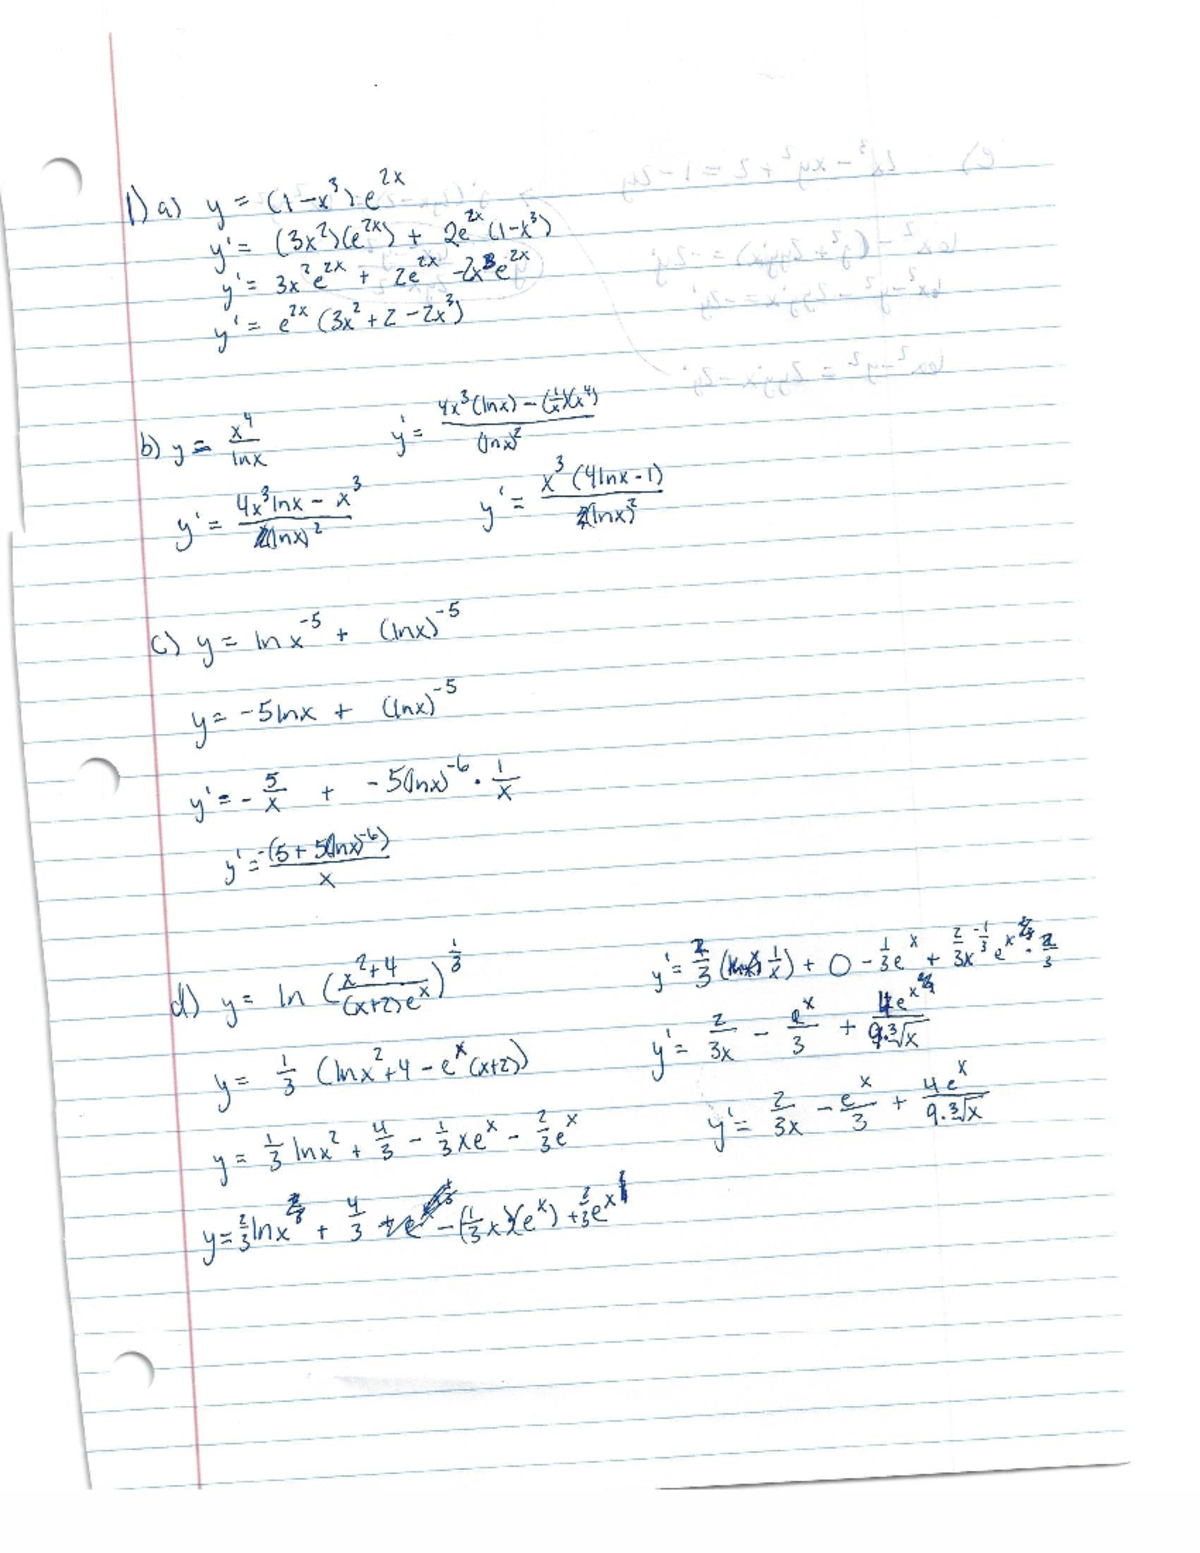 1) a) y = (1-x³)e^{2x}
y' = (3x²)(e^{2x}) + 2e^{2x}(1-x³)
y' = 3x²e^{2x} + 2e^{2x} - 2x³e^{2x}
y' = e^{2x}(3x² + 2 - 2x³)
b) y = x⁴/lnx
y' = (4x³(lnx) - (1/x)(x⁴))/(lnx)²
y' = (4x³lnx - x³)/(lnx)²
y' = x³(4lnx-1)/(lnx)²
c) y = ln x^{-5} + (lnx)^{-5}
y = -5lnx + (lnx)^{-5}
y' = -5/x + -5(lnx)^{-6} · 1/x
y' = -(5+5(lnx)^{-6})/x
d) y = ln((x²+4)/((x+2)e^x))^{1/3}
y = 1/3 (lnx²+4 - e^x(x+2))
y = 1/3 lnx² + 4/3 - 1/3 xe^x - 2/3 e^x
y = 2/3 lnx + 4/3 - (1/3 x)(e^x) + 2/3 e^x
y' = 2/3 (1/x) + 0 - 1/3 e^x + 2/3 x^{-1/3} e^x · 2/3
y' = 2/3x - e^x/3 + 4e^x/(9·³√x)
y' = 2/3x - e^x/3 + 4e^x/(9·³√x)